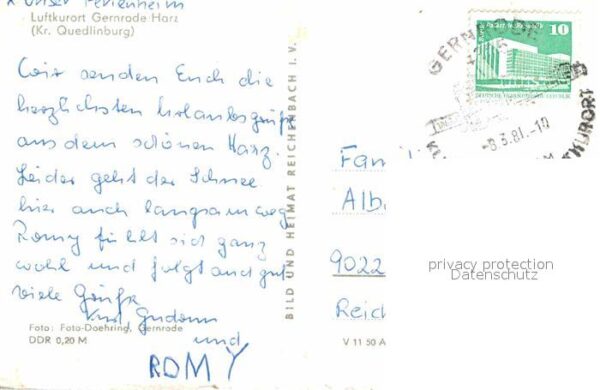 x unser Ferienheim
Luftkurort Gernrode Harz
(Kr. Quedlinburg)
Wir senden Euch die
herzlichsten Urlaubsgrüße
aus dem schönen Harz.
Leider geht der Schnee
hier auch langsam weg.
Romy fühlt sich ganz
wohl und folgt auch gut
viele Grüße
Gudrun
und
ROMY
Foto: Foto-Doehring, Gernrode
DDR 0,20 M
BILD UND HEIMAT REICHENBACH I. V.
V 11 50 A
10
GERNRODE
-8.3.81.-10
KURORT
Fami
Alb
9022
Reich
privacy protection
Datenschutz